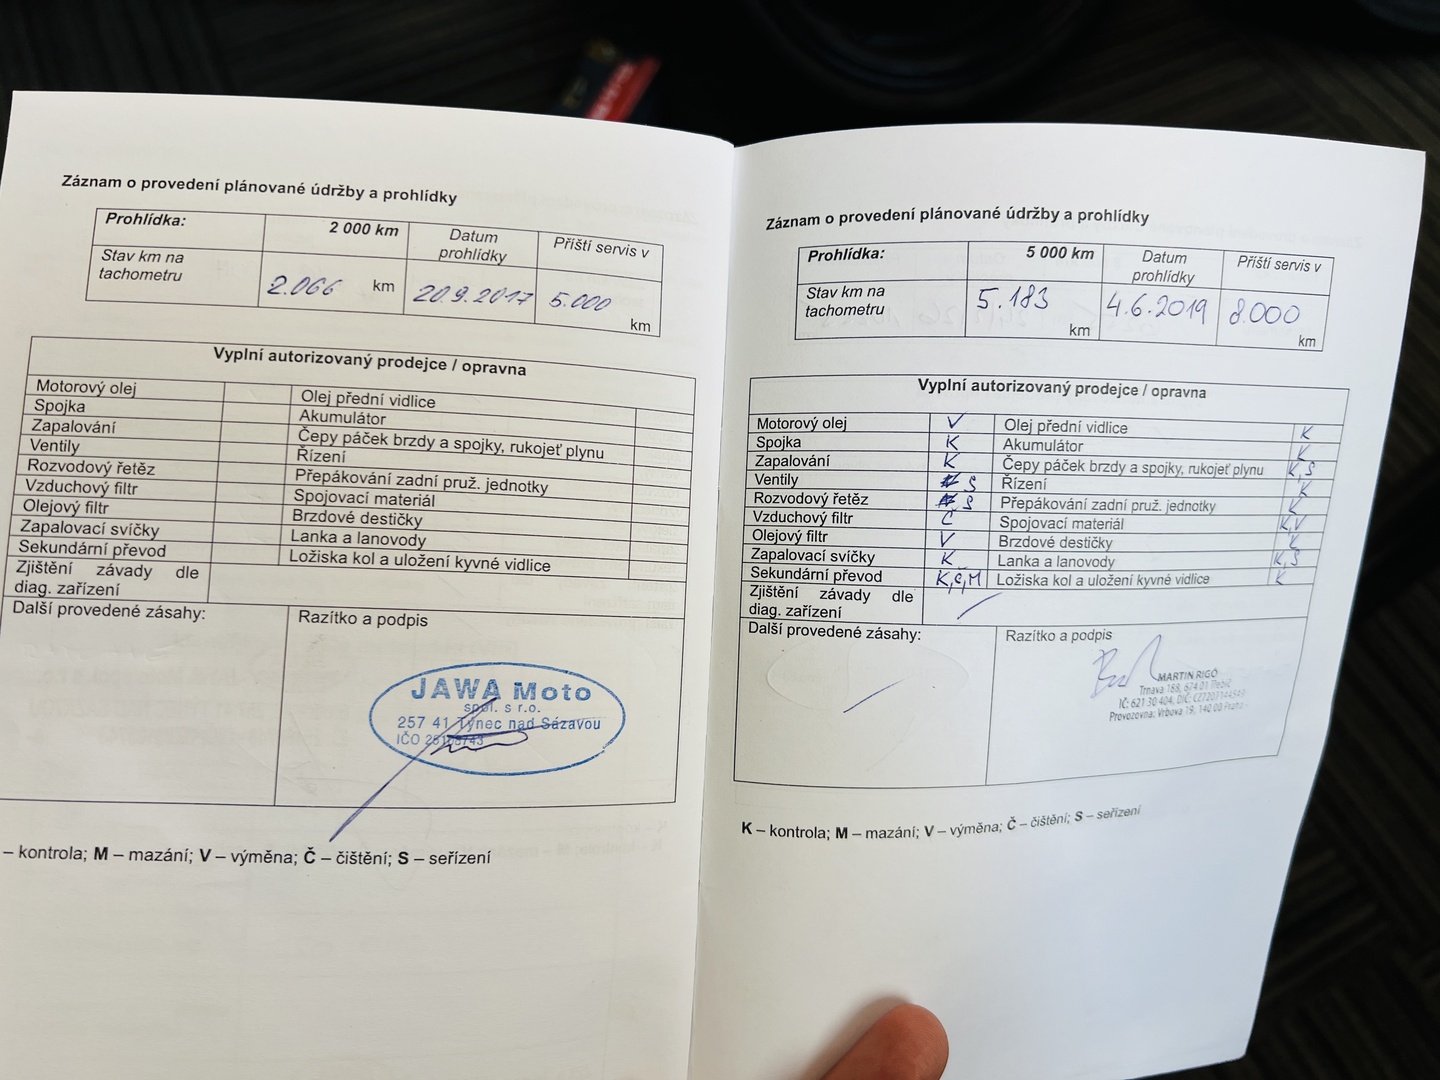 Záznam o provedení plánované údržby a prohlídky
Prohlídka: 2 000 km Datum prohlídky Příští servis v
Stav km na tachometru 2.066 km 20.9.2017 5.000 km
Vyplní autorizovaný prodejce / opravna
Motorový olej Olej přední vidlice
Spojka Akumulátor
Zapalování Čepy páček brzdy a spojky, rukojeť plynu
Ventily Řízení
Rozvodový řetěz Přepákování zadní pruž. jednotky
Vzduchový filtr Spojovací materiál
Olejový filtr Brzdové destičky
Zapalovací svíčky Lanka a lanovody
Sekundární převod Ložiska kol a uložení kyvné vidlice
Zjištění závady dle
diag. zařízení
Další provedené zásahy: Razítko a podpis
JAWA Moto
spol. s r.o.
257 41 Týnec nad Sázavou
IČO
– kontrola; M – mazání; V – výměna; Č – čištění; S – seřízení
Záznam o provedení plánované údržby a prohlídky
Prohlídka: 5 000 km Datum prohlídky Příští servis v
Stav km na tachometru 5.183 km 4.6.2019 8.000 km
Vyplní autorizovaný prodejce / opravna
Motorový olej V Olej přední vidlice K
Spojka K Akumulátor K
Zapalování K Čepy páček brzdy a spojky, rukojeť plynu K,S
Ventily S Řízení K
Rozvodový řetěz S Přepákování zadní pruž. jednotky K
Vzduchový filtr Č Spojovací materiál K,V
Olejový filtr V Brzdové destičky K
Zapalovací svíčky K Lanka a lanovody K,S
Sekundární převod K,Č,M Ložiska kol a uložení kyvné vidlice K
Zjištění závady dle
diag. zařízení
Další provedené zásahy: Razítko a podpis
MARTIN RIGÓ
Trnava 168, 674 01 Třebíč
IČ: 621 30 404, DIČ:
Provozovna: Vrbova 19, 140 00 Praha
K – kontrola; M – mazání; V – výměna; Č – čištění; S – seřízení